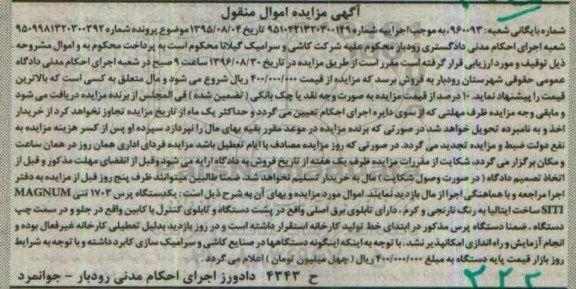 آگهی مزایده اموال منقول
شماره بایگانی شعبه: ۹۶۰۰۹۳ به موجب اجراییه شماره ۹۵۱۰۴۲۱۳۲۰۳۰۰۱۴۹ تاریخ ۱۳۹۵/۰۸/۰۴ موضوع پرونده شماره ۹۵۰۹۹۸۱۳۲۰۳۰۰۳۹۲
شعبه اجرای احکام مدنی دادگستری رودبار محکوم علیه شرکت کاشی و سرامیک گیلانا محکوم است به پرداخت محکوم به و اموال مشروحه
ذیل توقیف و مورد ارزیابی قرار گرفته است مقرر است از طریق مزایده در تاریخ ۱۳۹۶/۰۸/۳۰ ساعت ۹ صبح در شعبه اجرای احکام مدنی دادگاه
عمومی حقوقی شهرستان رودبار به فروش برسد که مزایده از قیمت ۴۰۰/۰۰۰/۰۰۰ ریال شروع می شود و مال متعلق به کسی است که بالاترین
قیمت را پیشنهاد نماید. ۱۰ درصد از قیمت مزایده به صورت وجه نقد یا چک بانکی ( تضمین شده ) فی المجلس از برنده مزایده دریافت می شود
و مابقی وجه مزایده ظرف مهلتی که از سوی دایره اجرای احکام تعیین می گردد و حداکثر یک ماه از تاریخ مزایده تجاوز نخواهد کرد از خریدار
اخذ و به نامبرده تحویل خواهد شد در صورتی که برنده مزایده در موعد مقرر بقیه بهای مال را نپردازد سپرده او پس از کسر هزینه مزایده به
نفع دولت ضبط و مزایده تجدید می گردد. در صورتی که روز مزایده مصادف با ایام تعطیل باشد مزایده فردای اداری همان روز در همان ساعت
و مکان برگزار می گردد، شکایت از مقررات مزایده ظرف یک هفته از تاریخ فروش به دادگاه ارایه می شود و قبل از انقضای مهلت مذکور و قبل از
اتخاذ تصمیم دادگاه ( در صورت وصول شکایت ) مال به خریدار تسلیم نخواهد شد ضمنا طالبین میتوانند ظرف پنج روز قبل از مزایده به دفتر
اجرا مراجعه و با هماهنگی اجرا از مال بازدید نمایند. اموال مورد مزایده و بهای آن به شرح ذیل است: یکدستگاه پرس ۱۷۰۳ تنی MAGNUM
SITI ساخت ایتالیا به رنگ نارنجی و کرم، دارای تابلوی برق اصلی واقع در پشت دستگاه و تابلوی کنترل با کابین واقع در جلو و در سمت چپ
دستگاه. ضمنا دستگاه پرس مذکور در ابتدای خط تولید کارخانه استقرار داشته است و در روز بازدید بدلیل تعطیلی کارخانه غیرفعال بوده و
انجام آزمایش و راه اندازی امکانپذیر نشد. با توجه به اینکه اینگونه دستگاهها در صنایع کاشی و سرامیک سازی کابرد داشته و با توجه به شرایط
روز بازار قیمت پایه دستگاه به مبلغ ۴۰۰/۰۰۰/۰۰۰ ریال ( چهل میلیون تومان ) اعلام می گردد.
ح ۴۳۴۳ دادورز اجرای احکام مدنی رودبار - جوانمرد